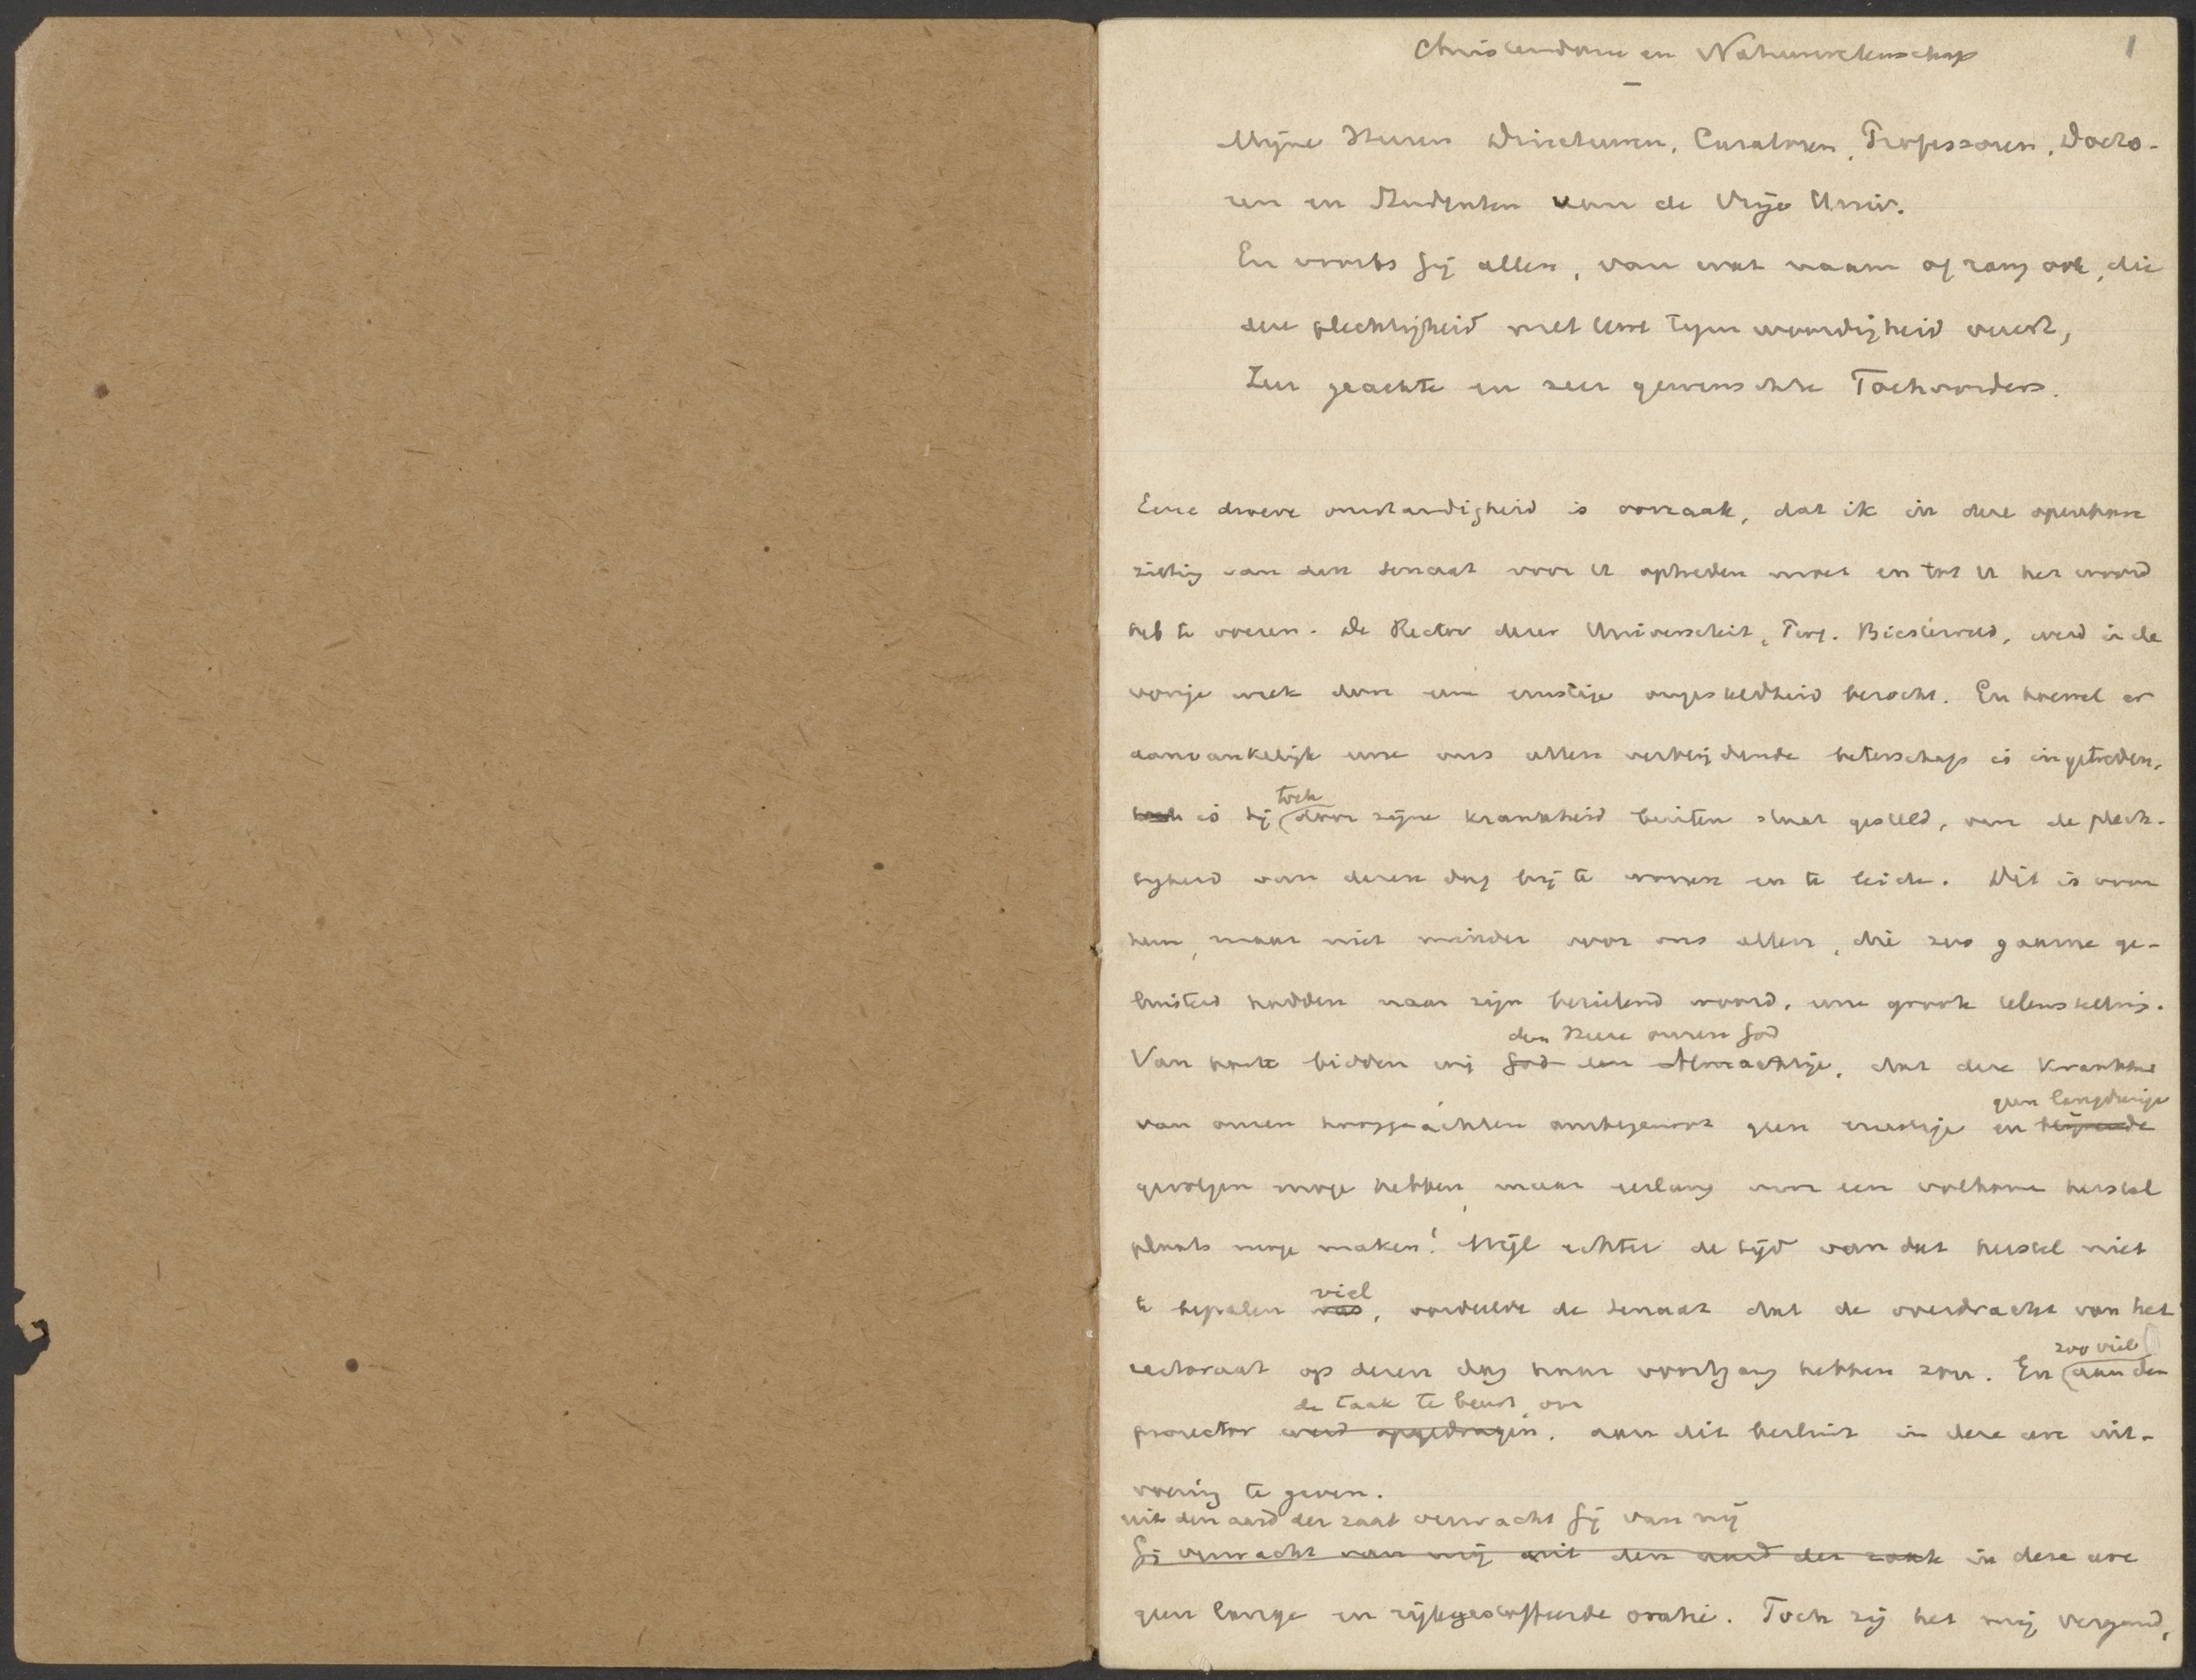 Christendom en Natuurwetenschap
1
Mijne Heeren Directeuren, Curatoren, Professoren, Docto-
ren en Studenten van de Vrije Univ.
En voorts Gij allen, van wat naam of rang ook, die
deze plechtigheid met Uwe tegenwoordigheid vereert,
Zeer geachte en zeer gewenschte Toehoorders.
Eene droeve omstandigheid is oorzaak, dat ik in deze openbare
zitting van den Senaat voor U optreden moet en tot U het woord
heb te voeren. De Rector dezer Universiteit, Prof. Biesterveld, werd in de
vorige week door eene ernstige ongesteldheid bezocht. En hoewel er
aanvankelijk eene ons allen verblijdende beterschap is ingetreden,
toch
toch is hij door zijne krankheid buiten staat gesteld, om de plech-
tigheid van dezen dag bij te wonen en te leiden. Dit is voor
hem, maar niet minder voor ons allen, die zoo gaarne ge-
luisterd hadden naar zijn bezielend woord, eene groote teleurstelling.
den Heere onzen God
Van harte bidden wij God den Almachtige, dat deze krankheid
geen langdurige
van onzen hooggeachten ambtgenoot geen ernstige en blijvende
gevolgen moge hebben, maar eerlang voor een volkomen herstel
plaats moge maken! Wijl echter de tijd van dat herstel niet
viel
te bepalen was, oordeelde de Senaat dat de overdracht van het
zoo viel
rectoraat op dezen dag haar voortgang hebben zou. En aan den
de taak te beurt, om
prorector werd opgedragen, aan dit besluit in deze ure uit-
voering te geven.
uit den aard der zaak verwacht Gij van mij
Gij verwacht van mij uit den aard der zaak in deze ure
geen lange en rijkgestoffeerde oratie. Toch zij het mij vergund,